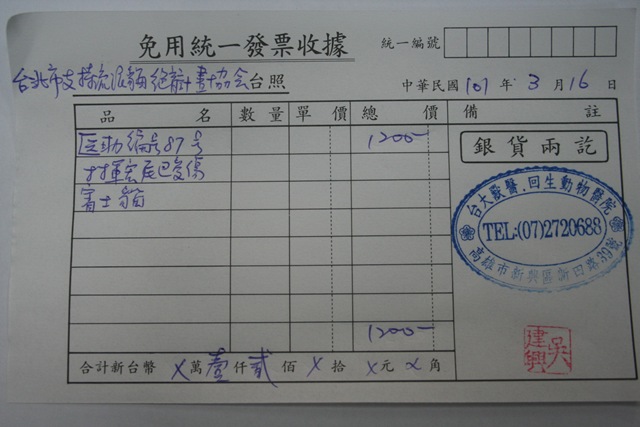 免用統一發票收據
統一編號
台北市支持流浪貓絕育計劃協会台照
中華民國101年3月16日
品名 數量 單價 總價 備註
醫助編號87号 1200-
尾巴受傷
銀貨兩訖
台大獸醫.回生動物醫院
TEL:(07)2720688
高雄市新興區新田路39號
1200-
吳建興
合計新台幣 X萬壹仟貳佰X拾X元X角